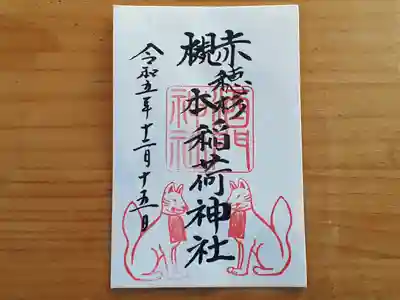 赤穂
槻本稲荷神社
令和五年十二月十五日
神社